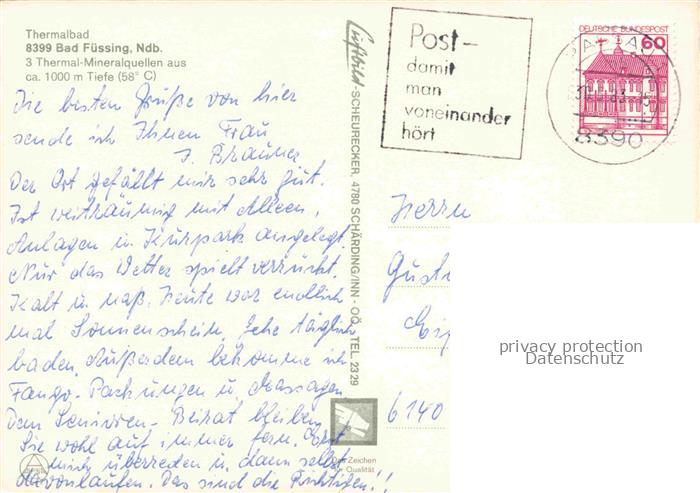 Thermalbad
8399 Bad Füssing, Ndb.
3 Thermal-Mineralquellen aus
ca. 1000 m Tiefe (58° C)
Die besten Grüße von hier
sende ich Ihnen Frau
J. Brauner
Der Ort gefällt mir sehr gut.
Ist weiträumig mit Alleen,
Anlagen u. Kurpark angelegt.
Nur das Wetter spielt verrückt.
Kalt u. naß. Heute war endlich
mal Sonnenschein. Gehe täglich
baden. Außerdem bekomme ich
Fango-Packungen u. Massagen
Dem Senioren-Beirat bleiben
Sie wohl auf immer fern. Erst
mich überreden u. dann selbst
davonlaufen. Das sind die Richtigen!!
Luftbild-SCHEURECKER, 4780 SCHÄRDING/INN - OÖ., TEL. 2329
Das Zeichen
der Qualität
Post-
damit
man
voneinander
hört
DEUTSCHE BUNDESPOST
60
8390
Herrn
6140
privacy protection
Datenschutz